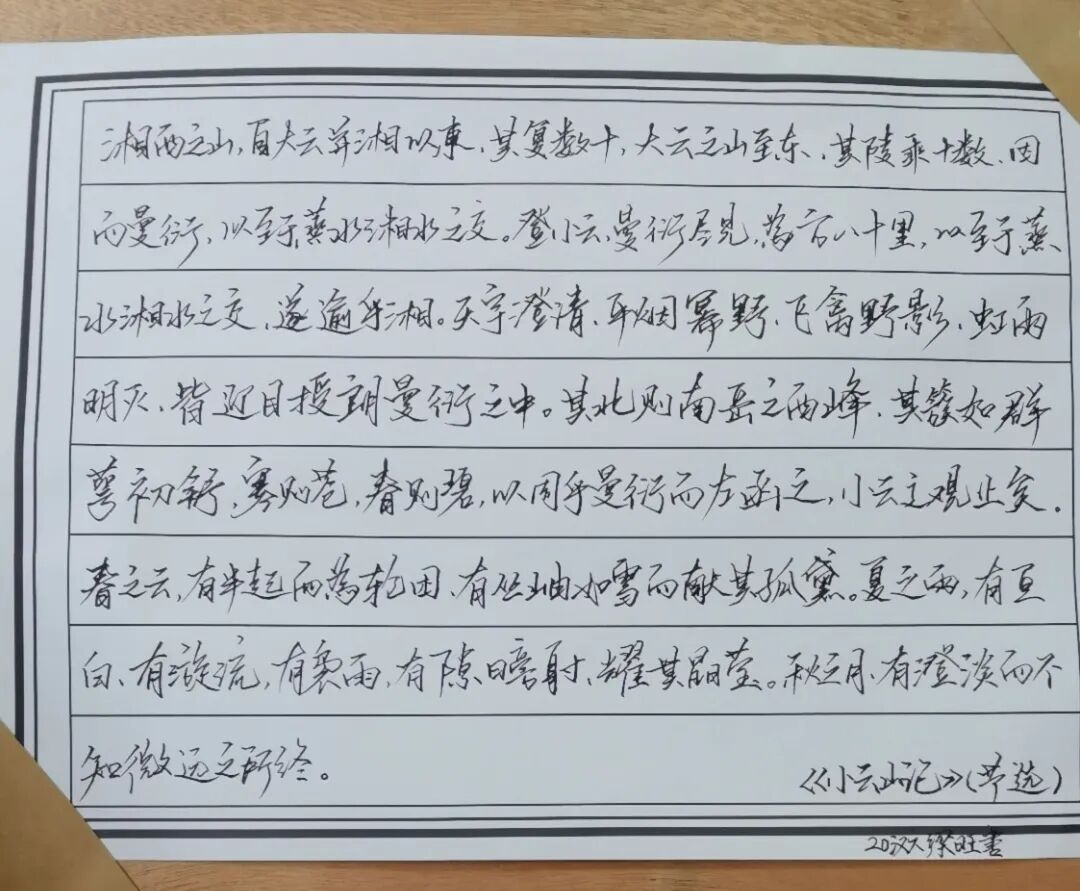 湘西之山，自大云并湘以東，其复数十，大云之山至东，其陵乘十数，因
而曼衍，以至于蒸水湘水之交。登小云，曼衍尽见，為方八十里，以至于蒸
水湘水之交，遂逾乎湘。天宇澄清，平烟幂野，飞禽野影，虹雨
明灭，皆迎目授朗曼衍之中。其北则南岳之西峰，其簇如群
萼初舒，寒则苍，春则碧，以周乎曼衍而左函之，小云之观止矣。
春之云，有半起而為轮囷，有丛岫如雪而献其孤黛。夏之雨，有亘
白，有漩流，有裂雨，有隙日旁射，耀其晶莹。秋之月，有澄淡而不
知微远之所终。
《小云山记》（节选）
20汉大 旺書